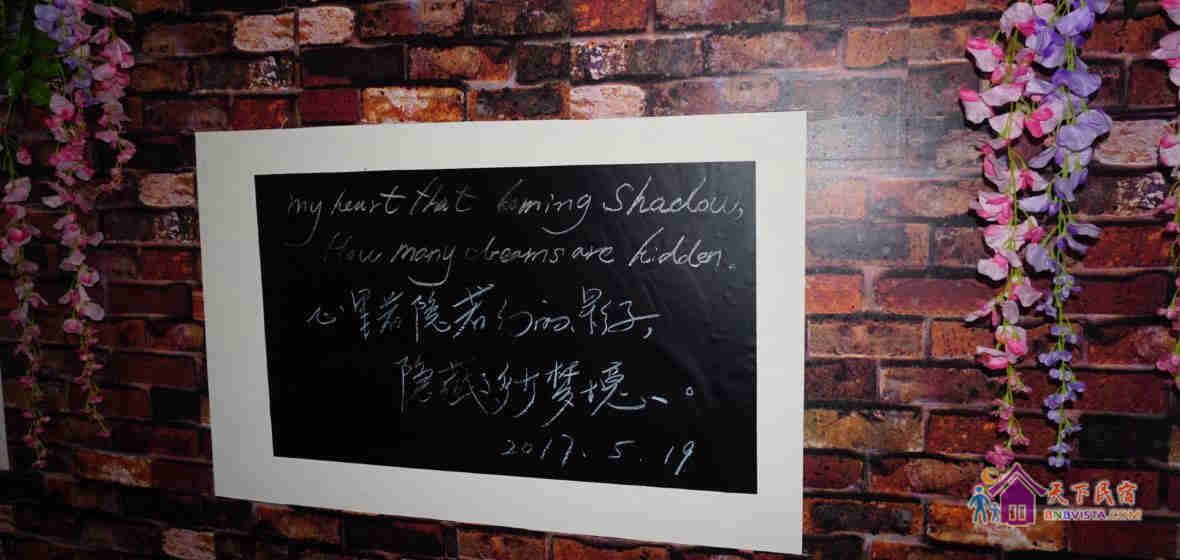 my heart that coming Shadow,
How many dreams are hidden。
心里若隐若幻的影子,
隐藏了多少梦境、。
2017.5.19
天下民宿
BNBVISTA.COM